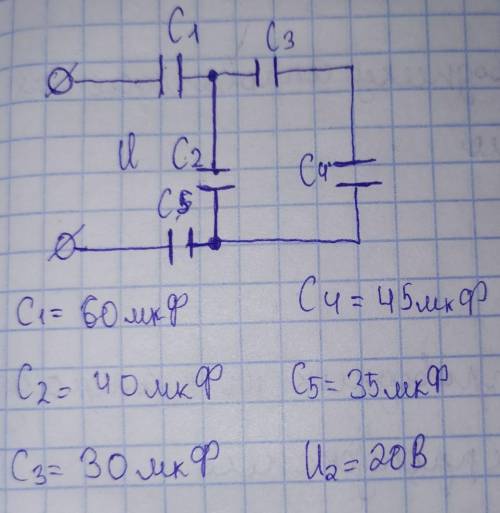 C1 C3
U C2 C4
C5
C1 = 60 мкФ C4 = 45 мкФ
C2 = 40 мкФ C5 = 35 мкФ
C3 = 30 мкФ U2 = 20 В